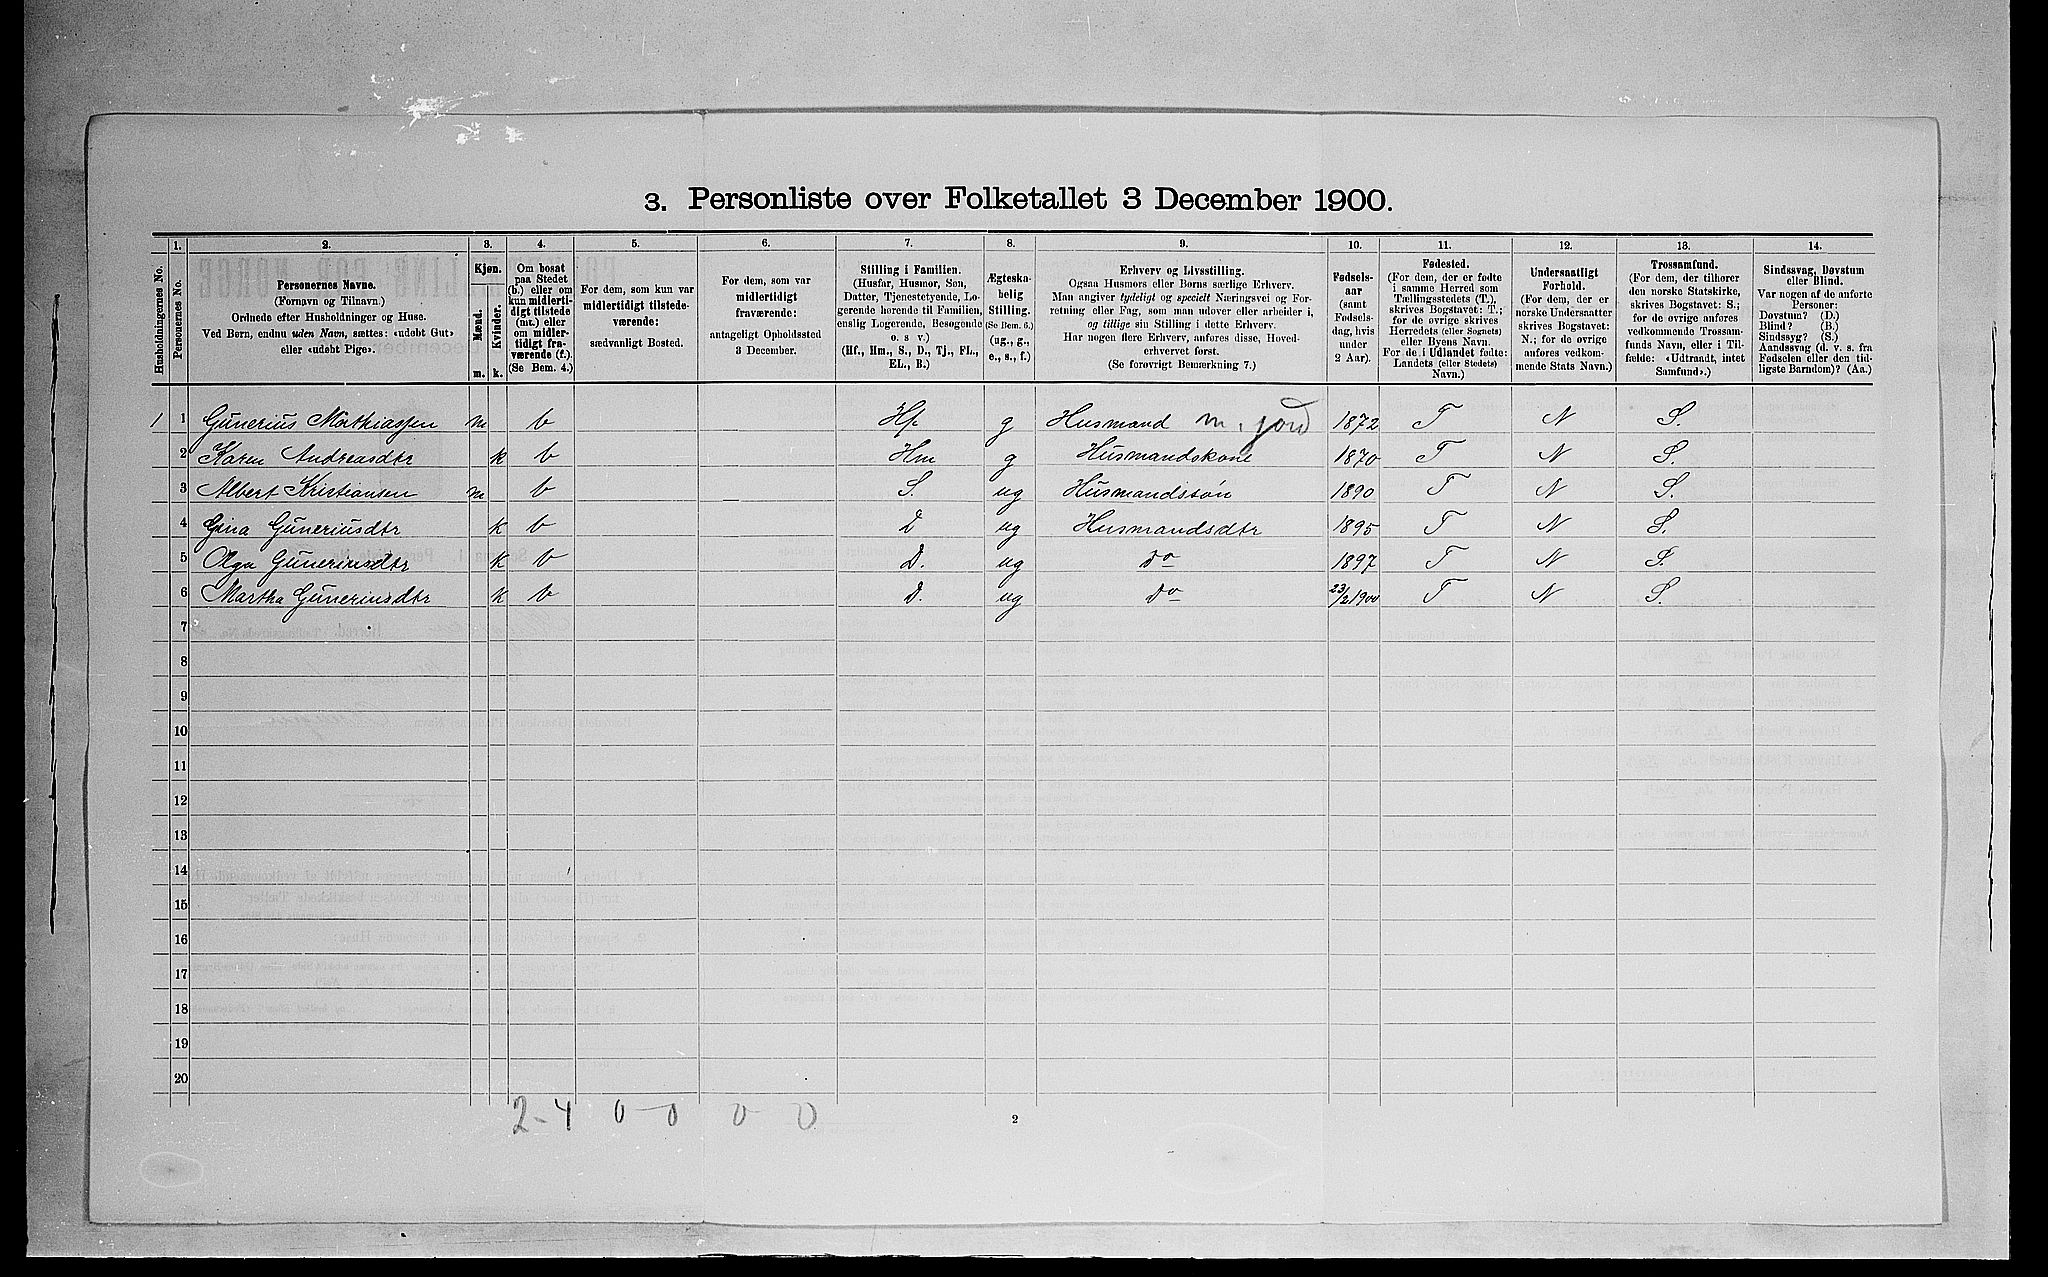 3. Personliste over Folketallet 3 December 1900.
Husholdningernes No.
1.
Personernes No.
2.
Personernes Navne.
(Fornavn og Tilnavn.)
Ordnede efter Husholdninger og Huse.
Ved Børn, endnu uden Navn, sættes: «udøbt Gut»
eller «udøbt Pige».
3.
Kjøn.
Mænd.
Kvinder.
m. k.
4.
Om bosat
paa Stedet
(b.) eller om
kun midlerti-
digt tilstede
(mt.) eller
om midler-
tidigt fra-
værende (f.).
(Se Bem. 4.)
5.
For dem, som kun var
midlertidigt tilstede-
værende:
sædvanligt Bosted.
6.
For dem, som var
midlertidigt
fraværende:
antageligt Opholdssted
3 December.
7.
Stilling i Familien.
(Husfar, Husmor, Søn,
Datter, Tjenestetyende, Lo-
gerende hørende til Familien,
enslig Logerende, Besøgende
o. s v.)
(Hf., Hm., S., D., Tj., FL.,
EL., B.)
8.
Ægteska-
belig
Stilling.
(Se Bem. 6.)
(ug., g.,
e., s., f.)
9.
Erhverv og Livsstilling.
Ogsaa Husmors eller Børns særlige Erhverv.
Man angiver tydeligt og specielt Næringsvei og For-
retning eller Fag, som man udover eller arbeider i,
og tillige sin Stilling i dette Erhverv.
Har nogen flere Erhverv, anføres disse, Hoved-
erhvervet først.
(Se forøvrigt Bemærkning 7.)
10.
Fødsels-
aar
(samt
Fødsels-
dag, hvis
under
2 Aar).
11.
Fødested.
(For dem, der er fødte
i samme Herred som
Tællingsstedets (T.),
skrives Bogstavet: T.;
for de øvrige skrives
Herredets (eller Sognets)
eller Byens Navn.
For de i Udlandet fødte:
Landets (eller Stedets)
Navn.)
12.
Undersaatligt
Forhold.
(For dem, der er
norske Undersaatter
skrives Bogstavet:
N.; for de øvrige
anføres vedkom-
mende Stats Navn.)
13.
Trossamfund.
(For dem, der tilhører
den norske Statskirke,
skrives Bogstavet: S.;
for de øvrige anføres
vedkommende Trossam-
funds Navn, eller i Til-
fælde: «Udtraadt, intet
Samfund».)
14.
Sindssvag, Døvstum
eller Blind.
Var nogen af de anførte
Personer:
Døvstum? (D.)
Blind? (B.)
Sindssyg? (S.)
Aandssvag (d. v. s. fra
Fødselen eller den tid-
ligste Barndom)? (Aa.)
1 1 Gunerius Mathiassen m b Hf g Husmand m. jord 1872 T N S.
2 Karen Andreasdtr k b Hm g Husmandskone 1870 T N S.
3 Albert Kristiansen m b S. ug Husmandssøn 1890 T N S.
4 Gina Guneriusdtr k b D ug Husmandsdtr 1895 T N S.
5 Olga Guneriusdtr k b D. ug Do 1897 T N S.
6 Martha Guneriusdtr k b D. ug Do 23/2 1900 T N S.
7
8
9
10
11
12
13
14
15
16
17
18
19
20
2-4 0-0 0-0
2